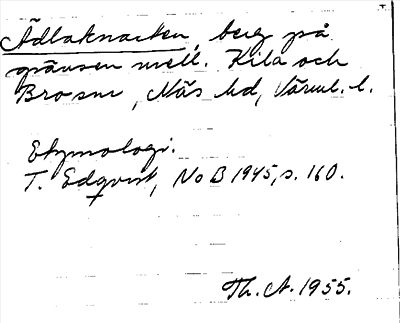 Ädlaknatten, berg på
gränsen mell. Kila och
Bro snr, Näs hd, Värml. l.
Etymologi.
T. Edqvist, NoB 1945, s. 160.
Th. A. 1955.